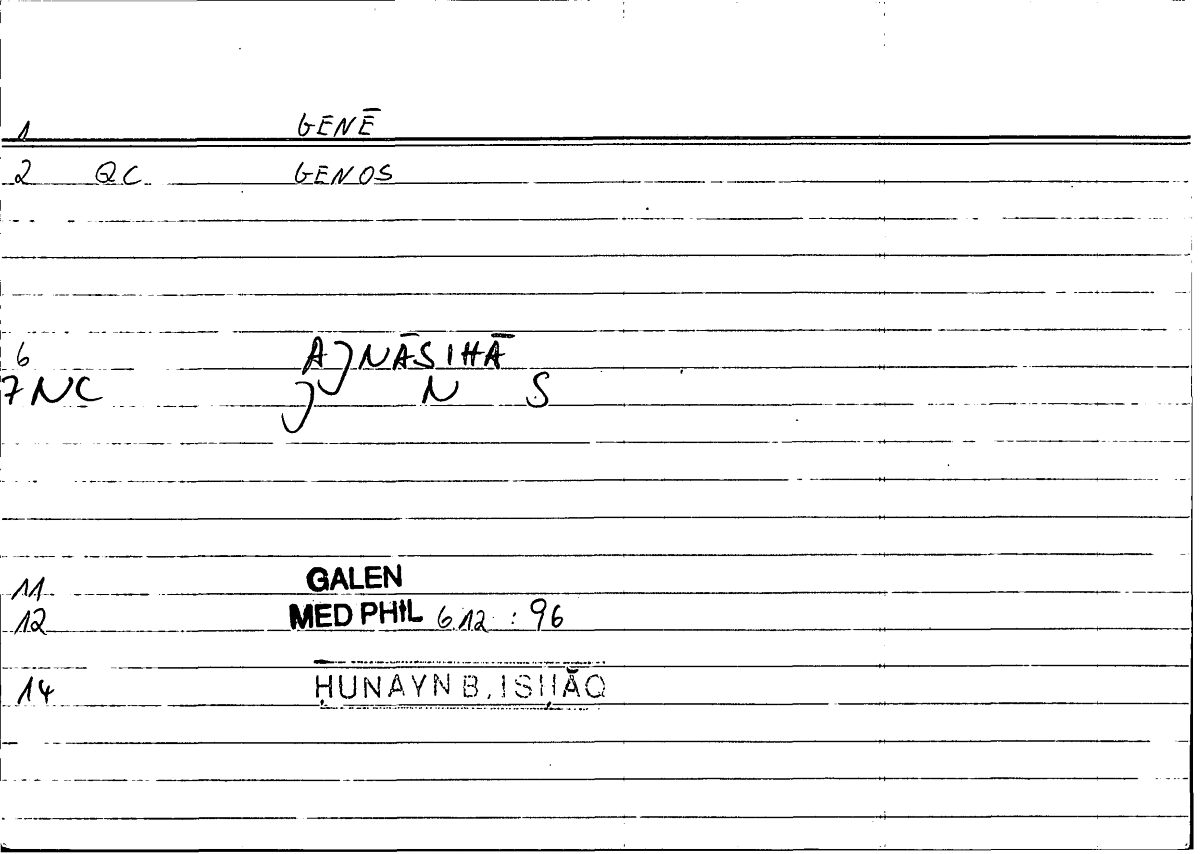 1 GENĒ
2 QC GENOS
6 AJNĀSIHĀ
7 NC J N S
11 GALEN
12 MED PHIL 6.12 : 96
14 ḤUNAYN B. ISḤĀQ